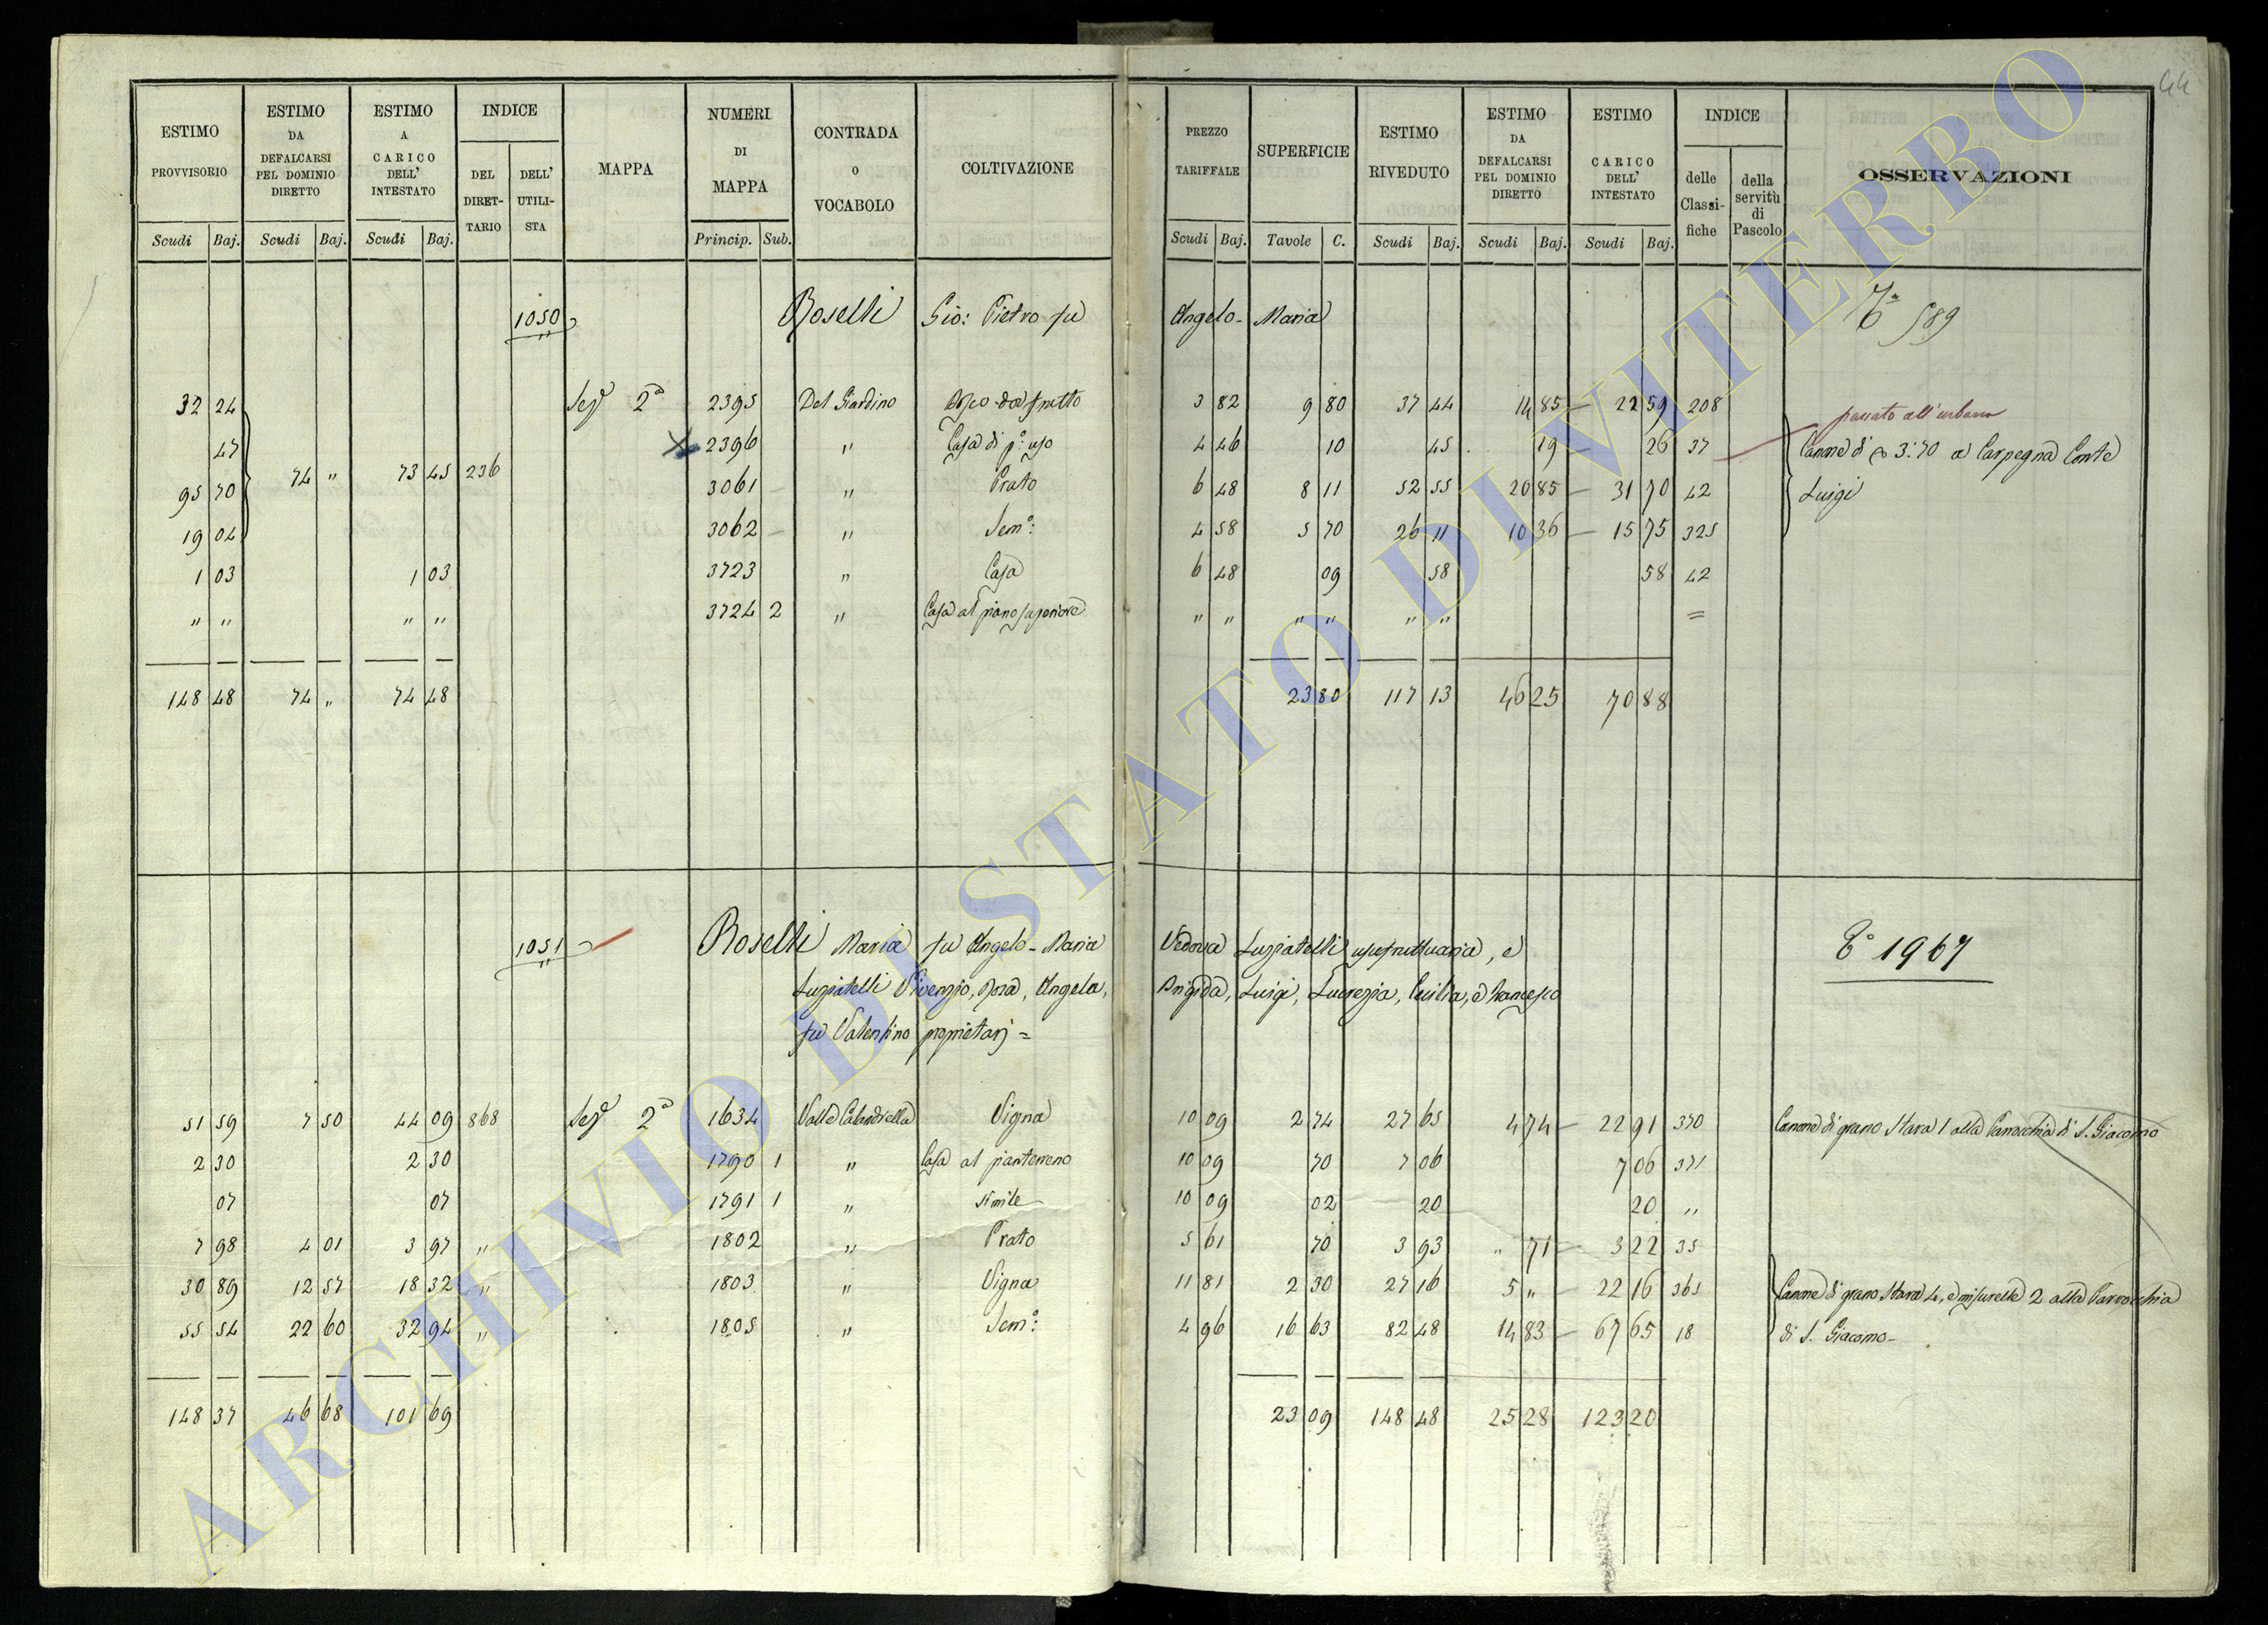 44
ESTIMO PROVVISORIO | ESTIMO DA DEFALCARSI PEL DOMINIO DIRETTO | ESTIMO A CARICO DELL' INTESTATO | INDICE DEL DIRETTARIO | DELL' UTILISTA | MAPPA | NUMERI DI MAPPA | CONTRADA O VOCABOLO | COLTIVAZIONE | PREZZO TARIFFALE | SUPERFICIE | ESTIMO RIVEDUTO | ESTIMO DA DEFALCARSI PEL DOMINIO DIRETTO | ESTIMO CARICO DELL' INTESTATO | INDICE delle Classifiche | della servitù di Pascolo | OSSERVAZIONI
Scudi Baj. | Scudi Baj. | Scudi Baj. | Princip. Sub. | Scudi Baj. | Tavole C. | Scudi Baj. | Scudi Baj. | Scudi Baj.
1050 Roselli Gio: Pietro fu Angelo-Maria 589
32 24 | Sez.e 2a | 2395 | Del Giardino | Bosco da frutto | 3 82 | 9 80 | 37 44 | 14 85 | 22 59 | 208
passato all'urbano
47 | 2396 | " | Casa di p.o uso | 4 46 | 10 | 45 | 19 | 26 | 37 | Canone di 3:70 a Carpegna Conte
95 70 | 74 " | 73 45 | 236 | 3061 | " | Prato | 6 48 | 8 11 | 52 55 | 20 85 | 31 70 | 42 | Luigi
19 04 | 3062 | " | Sem.o: | 4 58 | 5 70 | 26 11 | 10 36 | 15 75 | 325
1 03 | 1 03 | 3723 | " | Casa | 6 48 | 09 | 58 | 58 | 42
" " | " " | 3724 2 | " | Casa al piano superiore | " " | " " | " " | =
148 48 | 74 " | 74 48 | 23 80 | 117 13 | 46 25 | 70 88
1051 Roselli Maria fu Angelo-Maria Vedova Luziatelli usufruttuaria, e
Luziatelli Vicenzo, Rosa, Angela, Brigida, Luigi, Lucrezia, Cecilia, e Francesco
fu Valentino proprietarj =
1967
51 59 | 7 50 | 44 09 | 868 | Sez.e 2a | 1634 | Valle Calandrella | Vigna | 10 09 | 2 74 | 27 65 | 4 74 | 22 91 | 370 | Canone di grano Stara 1 alla Parrocchia di S. Giacomo
2 30 | 2 30 | 1790 1 | " | Casa al pianterreno | 10 09 | 70 | 7 06 | 7 06 | 371
07 | 07 | 1791 1 | " | simile | 10 09 | 02 | 20 | 20 | "
7 98 | 4 01 | 3 97 | " | 1802 | " | Prato | 5 61 | 70 | 3 93 | " 71 | 3 22 | 35
30 89 | 12 57 | 18 32 | " | 1803 | " | Vigna | 11 81 | 2 30 | 27 16 | 5 " | 22 16 | 365 | Canone di grano Stara 4, e misurelle 2 alla Parrocchia
55 54 | 22 60 | 32 94 | " | 1805 | " | Sem.o: | 4 96 | 16 63 | 82 48 | 14 83 | 67 65 | 18 | di S. Giacomo
148 37 | 46 68 | 101 69 | 23 09 | 148 48 | 25 28 | 123 20
ARCHIVIO DI STATO DI VITERBO